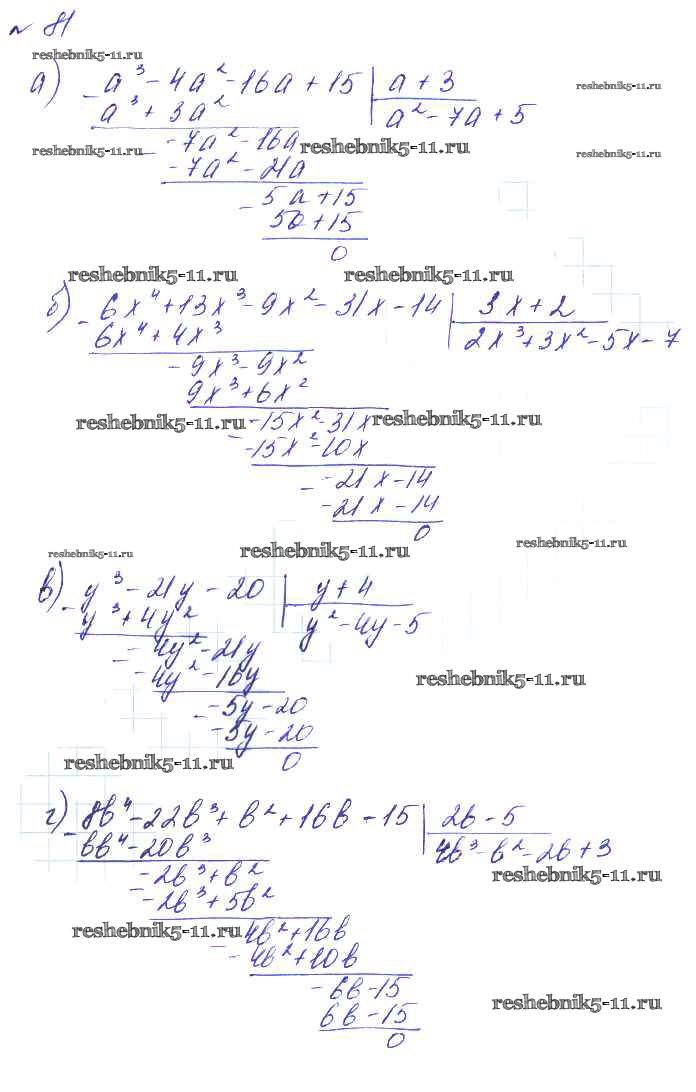 № 81
reshebnik5-11.ru
а) a³ - 4a² - 16a + 15 | a + 3
reshebnik5-11.ru
- a³ + 3a² a² - 7a + 5
reshebnik5-11.ru - 7a² - 16a reshebnik5-11.ru reshebnik5-11.ru
- 7a² - 21a
- 5a + 15
5a + 15
0
reshebnik5-11.ru reshebnik5-11.ru
б) 6x⁴ + 13x³ - 9x² - 31x - 14 | 3x + 2
- 6x⁴ + 4x³ 2x³ + 3x² - 5x - 7
- 9x³ - 9x²
9x³ + 6x²
reshebnik5-11.ru -15x² - 31x reshebnik5-11.ru
- -15x² - 10x
- -21x - 14
-21x - 14
0
reshebnik5-11.ru reshebnik5-11.ru reshebnik5-11.ru
в) y³ - 21y - 20 | y + 4
- y³ + 4y² y² - 4y - 5
- -4y² - 21y
-4y² - 16y reshebnik5-11.ru
- -5y - 20
-5y - 20
reshebnik5-11.ru 0
г) 8b⁴ - 22b³ + b² + 16b - 15 | 2b - 5
- 8b⁴ - 20b³ 4b³ - b² - 2b + 3
- -2b³ + b² reshebnik5-11.ru
-2b³ + 5b²
reshebnik5-11.ru -4b² + 16b
- -4b² + 10b
- 6b - 15
6b - 15 reshebnik5-11.ru
0